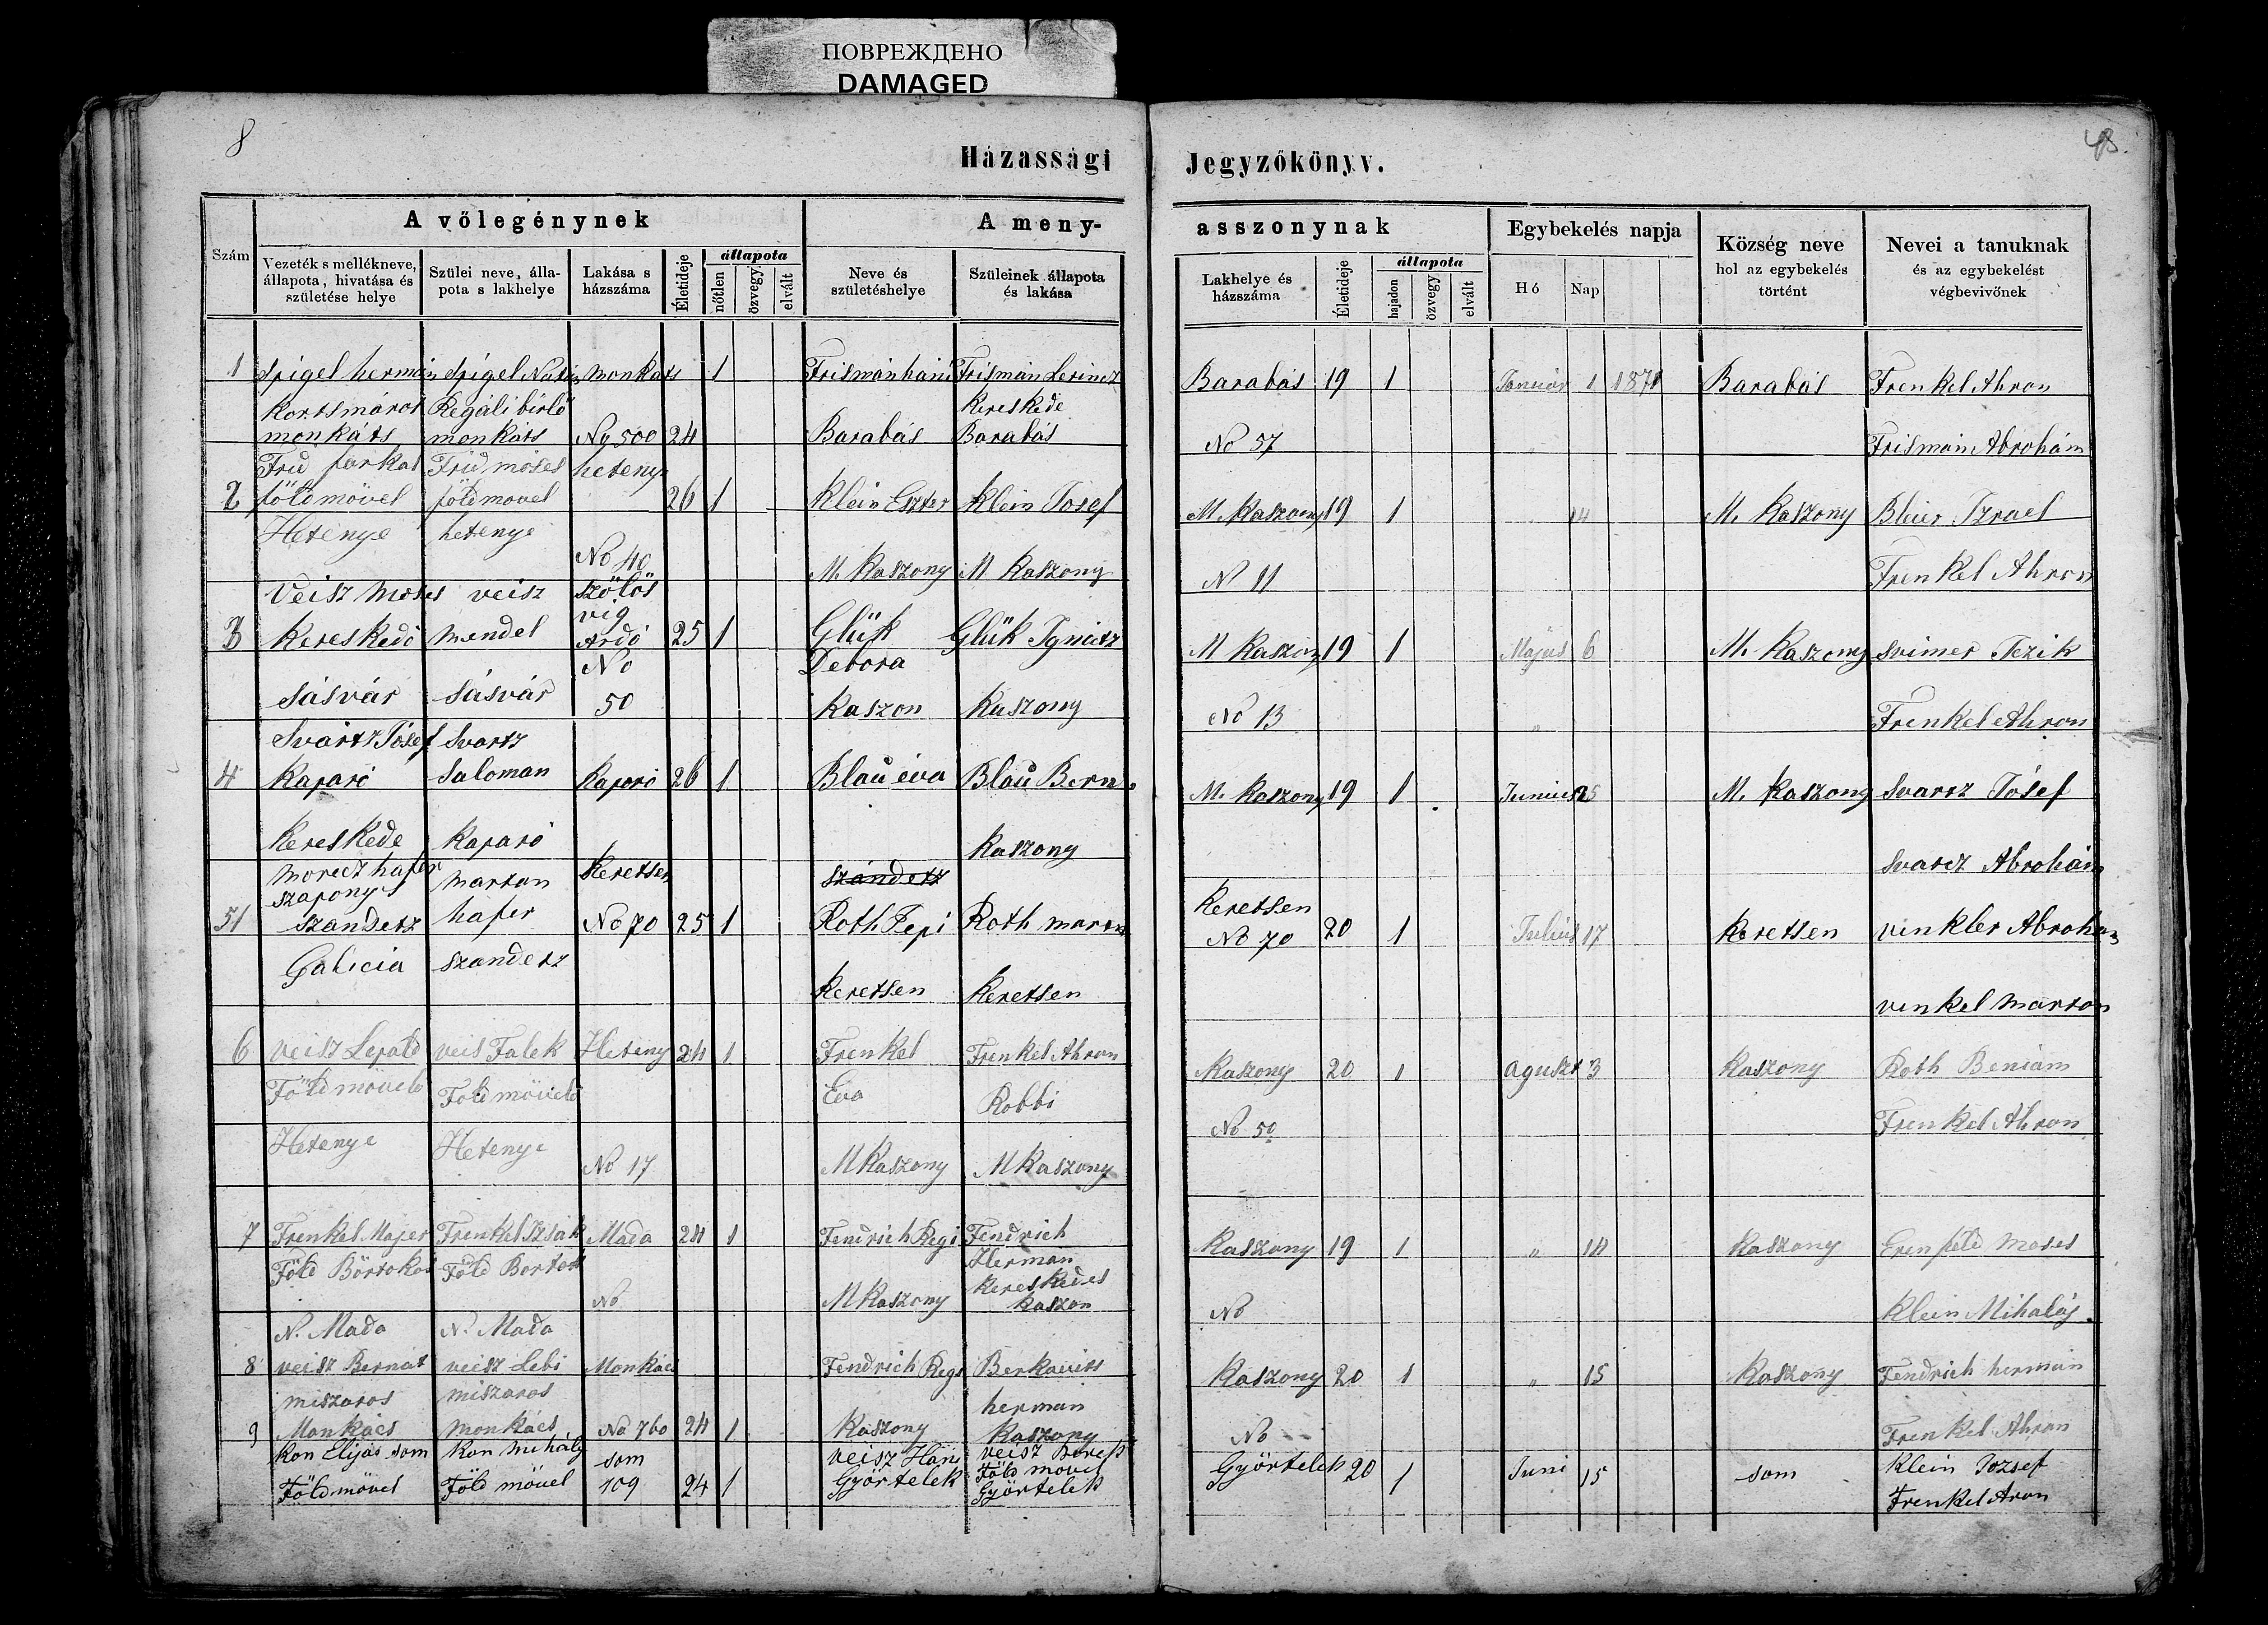 ПОВРЕЖДЕНО
DAMAGED
8
48.
Házassági Jegyzőkönyv.
Szám
A vőlegénynek
A meny-
asszonynak
Egybekelés napja
Község neve
hol az egybekelés
történt
Nevei a tanuknak
és az egybekelést
végbevivőnek
Vezeték s mellékneve,
állapota, hivatása és
születése helye
Szülei neve, álla-
pota s lakhelye
Lakása s
házszáma
Életideje
állapota
nőtlen
özvegy
elvált
Neve és
születéshelye
Szüleinek állapota
és lakása
Lakhelye és
házszáma
Életideje
állapota
hajadon
özvegy
elvált
Hó
Nap
1 Spigel herman Spigel Natin monkats 1 Frisman hani Frisman Lerincz Barabás 19 1 Januar 1 1871 Barabás Frenkel Ahron
Kortsmáros Regáli birlő Kereskede
monkáts monkáts No 500 24 Barabás Barabás No 57 Frisman Abrohám
Frid farkas Frid moses hetenye
2 földmövel földmovel 26 1 Klein Eszter Klein Josef M. Kaszony 19 1 14 M. Kaszony Bleier Izrael
Hetenye hetenye
No 40 M. Kaszony M Kaszony N 11 Frenkel Ahron
Veisz Moses veisz szölös
vig
3 Kereskedö mendel Ardó 25 1 Glük Glük Ignatz M Kaszony 19 1 Május 6 M. Kaszony Svimer Jezik
No Debora
Sásvár Sásvár 50 Kaszon Kaszony No 13 " Frenkel Ahron
Svartz Josef Svartz
4 Kaparó Saloman Kaporó 26 1 Blau éva Blau Bern. M. Kaszony 19 1 Junius 25 M. Kaszony Svarcz Jósef
Kereskede Kaparó Kaszony Svarcz Abrohám
Morecz hafer Marton Keretsen szandetz
szapony
51 szandetz hafer No 70 25 1 Roth Pepi Roth marton Keretsen No 70 20 1 Julius 17 Keretsen vinkler Abroham
Galicia szandetz
Keretsen Keretsen venkel marton
6 veisz Lepold veis Falek Heteny 24 1 Frenkel Frenkel Ahron Kaszony 20 1 Aguszt 3 Kaszony Roth Beniám
Földmövelö Földmövelö Eva Robbi No 50 Frenkel Ahron
Hetenye Hetenye No 17 M Kaszony M Kaszony
7 Frenkel Majer Frenkel Izsák Mada 24 1 Fendrich Regi Fendrich Kaszony 19 1 " 14 Kaszony Erenfeld Moses
Föld Börtokos Föld Bortok Herman
No M Kaszony Kereskedes Kaszon No Klein Mihalÿ.
N. Mada N. Mada
8 veisz Bernat veisz Lebi Monkács Fendrich Regi Berkovits Kaszony 20 1 " 15 Kaszony Fendrich herman
miszaros miszaros herman
9 Monkács monkács No 760 24 1 Kaszony Kaszony No Frenkel Ahron
Kon Elijás Som Kon Mihály Som veisz Hani veisz Györtelek 20 1 Juni 15 Som Klein Jozsef
Földmövel Föld mövel 109 24 1 Györtelek Föld movel Györtelek Frenkel Aron